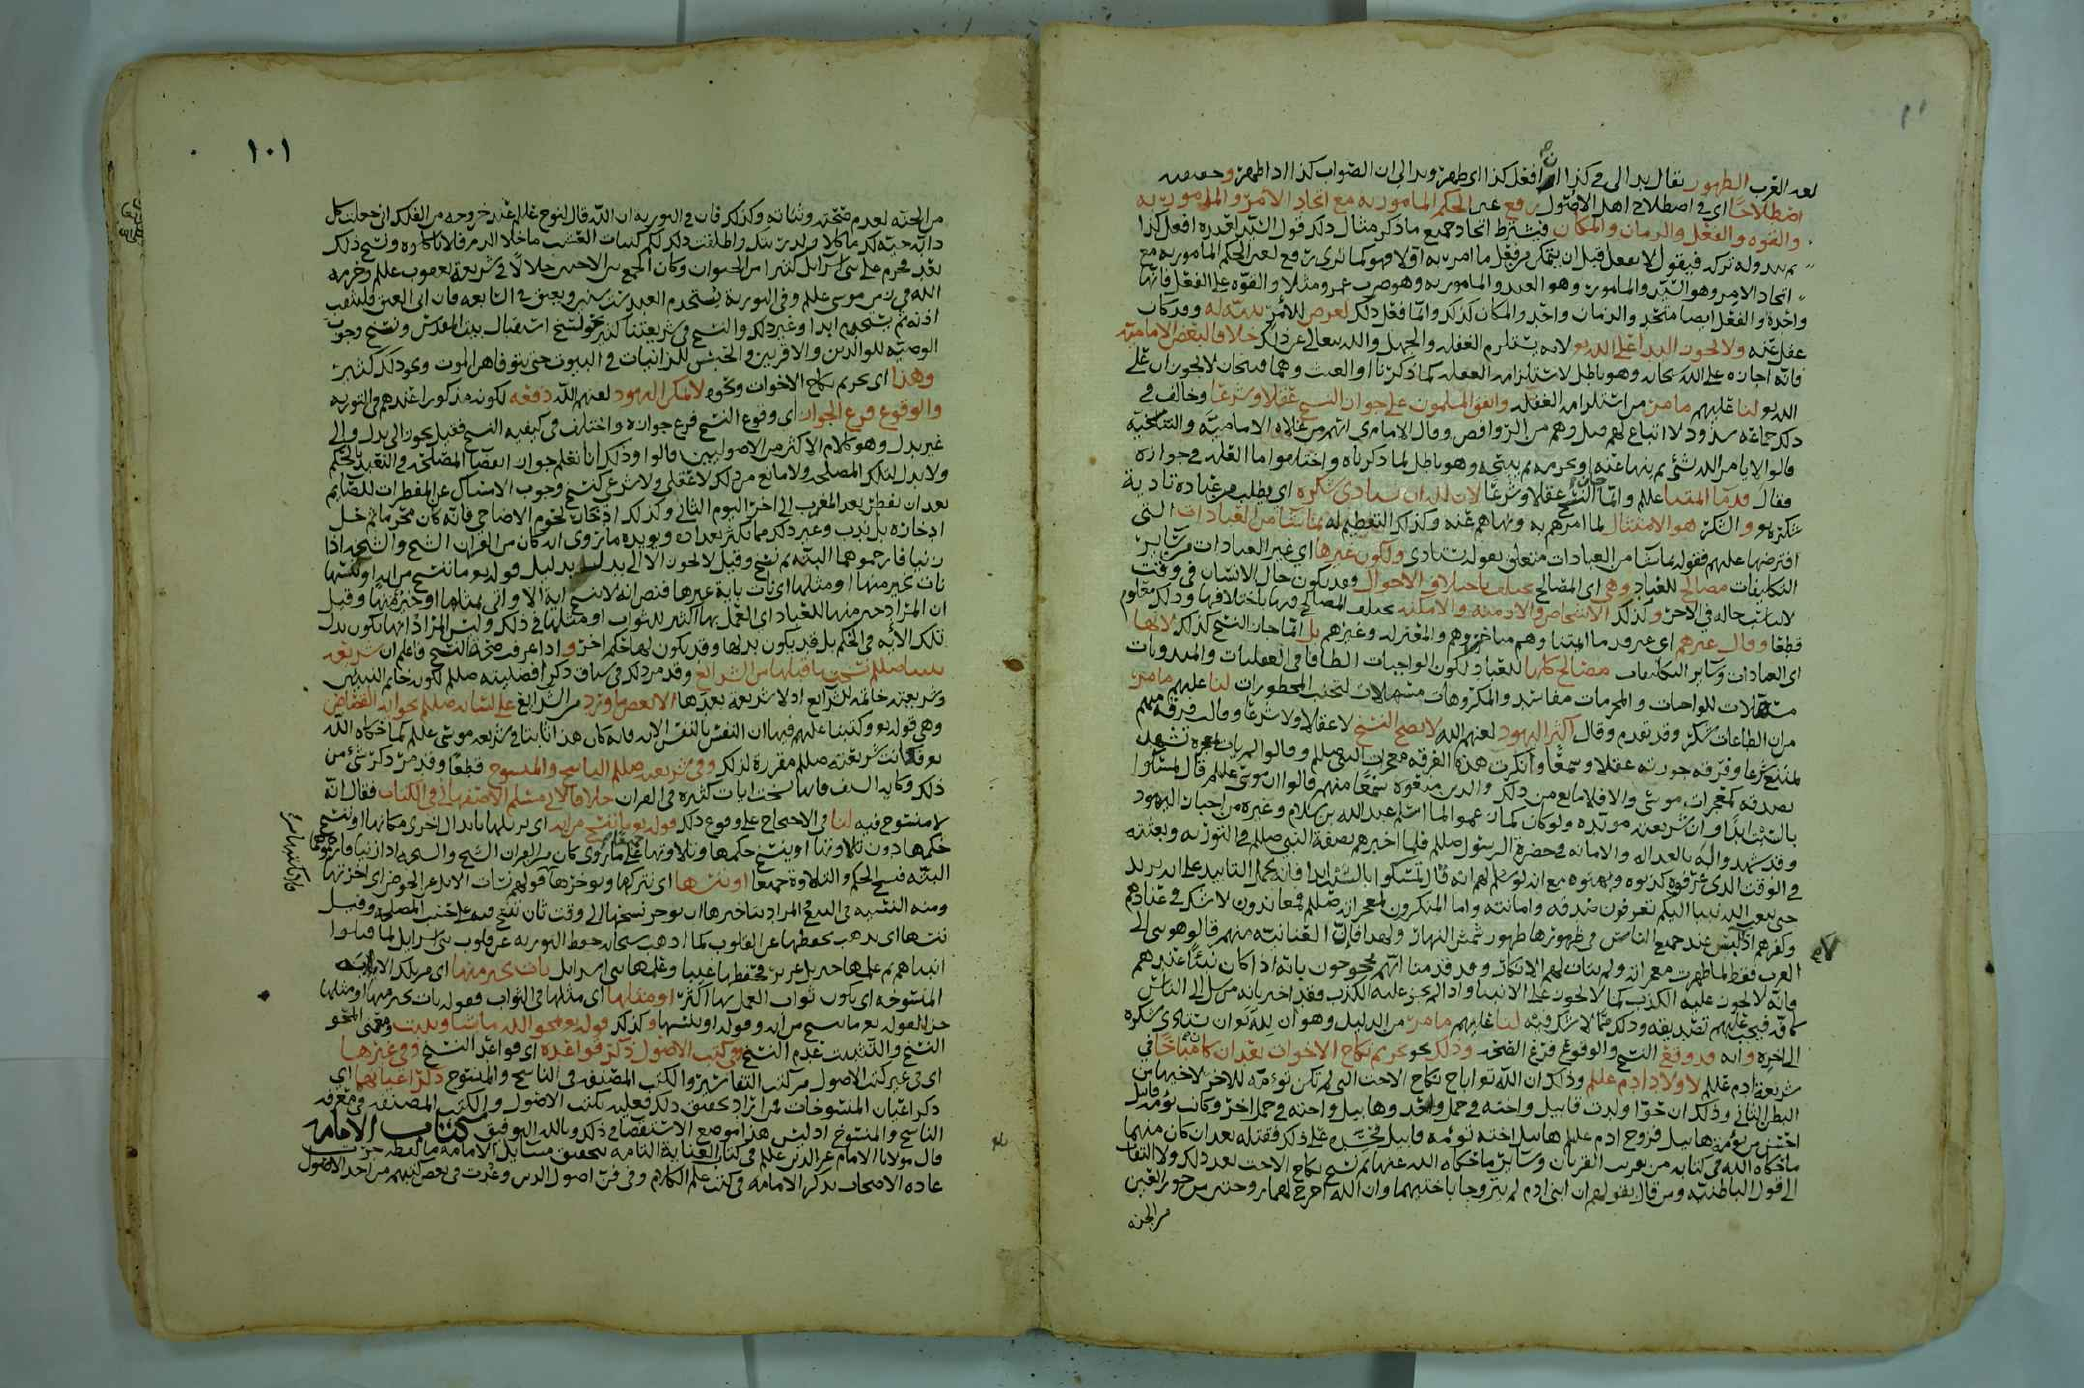 لغة العرب الظهور يقال بدا لي في كذا ان افعل كذا اي ظهر وبدا لي ان الصواب كذا اذا ظهر وحقيقته
اصطلاحًا اي في اصطلاح اهل الاصول رفع عين الحكم المأمور به مع اتحاد الآمر والمأمور به
والقوه والفعل والزمان والمكان فيشترط اتحاد جميع ما ذكر مثال ذلك قول السيد لعبده افعل كذا
ثم يبدو له تركه فيقول لا تفعل قبل ان يتمكن من فعل ما امر به أولا فهو كما ترى رفع لعين الحكم المأمور به مع
اتحاد الآمر وهو السيد والمأمور وهو العبد والمأمور به وهو ضرب عمرو مثلا والقوه على الفعل فانها
واحده والفعل ايضا متحد والزمان واحد والمكان كذلك وانما فعل ذلك لعرض للآمر بدله له وقد كان
غفل عنه ولا يجوز البدا على الله تع لانه يستلزم الغفله والجهل والله تعالى عن ذلك خلافا لبعض الاماميه
فانه اجازه على الله سبحانه وهو باطل لاستلزامه الغفله كما ذكرنا او العبث وهما قبيحان لا يجوزان على
الله تع لنا عليهم ما مر من استلزامه الغفله واتفق المسلمون على جواز النسخ عقلا وشرعًا وخالف في
ذلك جماعه شذوذ لا اتباع لهم قيل وهم من الروافض وقال الامام ي انهم من غلاه الاماميه والتناسخيه
قالوا لا يامر الله بشئ ثم ينها عنه او يحرمه ثم يبيحه وهو باطل لما ذكرناه واختلفوا ما العله في جوازه
فقال قدمآ ائمتنا عللم وانما جاز النسخ عقلا وشرعًا لان لله ان يتأدى شكره اي يطلب من عباده تادية
شكره تع والشكر هو الامتثال لما امرهم به ونهاهم عنه وكذلك التعظيم له بما شآ من العبادات التي
افترضها عليهم فقوله بما شآ من العبادات متعلق بقوله يتأدى ولكون غيرها اي غير العبادات من سآير
التكليفات مصالح للعباد وهي اي المصالح تختلف باختلاف الاحوال وقد يكون حال الانسان في وقت
لا يناسب حاله في الاخر وكذلك الاشخاص والازمنه والامكنه تختلف المصالح فيها باختلافها وذلك معلوم
قطعًا وقال غيرهم اي غير قدمآ ائمتنا وهم متأخروهم والمعتزله وغيرهم بل انما جاز النسخ كذلك لانها
اي العبادات وسآير التكليفات مصالح كلها للعباد لكون الواجبات الطافا في العقليات والمندوبات
مسهلات للواجبات والمحرمات مفاسد والمكروهات مسهلات لتجنب المحظورات لنا عليهم ما مر
من ان الطاعات شكر وقد تقدم وقال اكثر اليهود لعنهم الله لا يصح النسخ لا عقلا ولا شرعًا وقالت فرقة منهم
يمتنع شرعا وفرقه جوزته عقلا وسمعًا وانكرت هذه الفرقه معجزات النبي صللم وقالوا لم يات بمعجزه تشهد
بصدقه كمعجزات موسى والا فلا مانع من ذلك والذين منعوه سمعًا منهم قالوا ان موسى عللم قال تمسكوا
بالسبت ابدًا وان شريعته مؤبده ولو كان كما زعموا لما اسلم عبد الله بن سلام وغيره من احبار اليهود
وقد شهدوا له بالعداله والامانه في حضرة الرسول صللم فلما اخبرهم بصفة النبي صللم في التوريه وبعثته
في الوقت الذي عرفوه كذبوه وبهتوه مع انه لو سلم لهم انه قال تمسكوا بالسبت ابدا فانه يحمل التابيد على انه يريد
حتى يبعث الله نبيا اليكم تعرفون صدقه وامانته واما المنكرون لمعجزاته صللم فمعاندون لا شك في عنادهم
وكفرهم اذ ليس عند جميع الناس في ظهورها ظهور شمس النهار ولهذا قالت العنانيه منهم قالوا هو نبي الى
العرب فقط لما ظهرت معجزاته ولم يتات لهم الانكار وقد قدمنا انهم محجوجون بانه اذا كان نبيًا عندهم
فانه لا يجوز عليه الكذب كما لا يجوز على الانبيا واذا لم يجز عليه الكذب فقد اخبر بانه مرسل الى الناس
كافه فيجب عليهم تصديقه وذلك مما لا شك فيه لنا عليهم ما مر من الدليل وهو ان لله تع ان يتادى شكره
الى اخره وانه قد وقع النسخ والوقوع فرع الصحه وذلك نحو تحريم نكاح الاخوات بعد ان كان مباحًا في
شريعة ادم عللم لاولاد ادم عللم وذلك ان الله تع اباح نكاح الاخت التي لم تكن توءمه للاخر لاخيها من
البطن الثاني وذلك ان حوا ولدت قابيل واخته في حمل واحد وهابيل واخته في حمل اخر وكانت توءمه قابيل
احسن من توءمه هابيل فزوج ادم عللم هابيل اخته توءمه قابيل فحسده على ذلك فقتله بعد ان كان منهما
ما حكاه الله في كتابه من تقريب القربان وسآير ما حكاه الله عنهما ثم نسخ نكاح الاخت بعد ذلك ولا التفات
الى قول الباطنيه ومن قال بقولهم ان ابني ادم لم يتزوجا باختيهما وان الله اخرج لهما زوجتين من حور العين
من الجنه
١٠١
من الجنه لعدم صحته وثباته وكذلك فان في التوريه ان الله قال لنوح عللم عند خروجه من الفلك اني جعلت كل
دابة حيه لك ماكلا ولذريتك واطلقت ذلك لكم كنبات العشب ما خلا الدم فلا تاكلوه ونسخ ذلك
بعد فحرم على بني اسرايل كثيرا من الحيوان وكان الجمع بين الاختين حلالًا في شريعة يعقوب عللم وحرمه
الله في زمن موسى عللم وفي التوريه يستخدم العبد ست سنين ويعتق في السابعه فان ابى العتق فليثقب
اذنه ثم يستخدم ابدا وغير ذلك والنسخ في شريعتنا كثير نحو نسخ استقبال بيت المقدس ونسخ وجوب
الوصيه للوالدين والاقربين والحبس للزانيات في البيوت حتى يتوفاهن الموت ونحو ذلك كثير
وهذا اي تحريم نكاح الاخوات ونحوه لا يمكن اليهود لعنهم الله دفعه لكونه مذكورا عندهم في التوريه
والوقوع فرع الجواز اي وقوع النسخ فرع جوازه واختلف في كيفيه النسخ فقيل يجوز الى بدل والى
غير بدل وهو كلام الاكثر من الاصوليين قالوا وذلك انا نعلم جواز انقضا المصلحه في التعبد بالحكم
ولا بدل لتلك المصلحه ولا مانع من ذلك لا عقلي ولا شرعي كنسخ وجوب الامساك عن المفطرات للصايم
بعد ان يفطر بعد المغرب الى اخر اليوم الثاني وكذلك ادخار لحوم الاضاحي فانه كان محرما ثم حل
ادخاره بل ندب وغير ذلك مما يكثر تعداده ويويده ما روى انه كان من القران الشيخ والشيخه اذا
زنيا فارجموهما البته ثم نسخ وقيل لا يجوز الا الى بدل بدليل قوله تع ما ننسخ من ايه او ننسها
نات بخير منها او مثلها اي نات باية غيرها فنص انه لا ينسخ ايه الا واتى بمثلها او خير منها وقيل
ان المراد خير منها للعباد اي العمل بها اكثر للثواب او مثلها في ذلك وليس المراد انها تكون بدل
تلك الايه في الحكم بل قد يكون بدلها وقد يكون لها حكم اخر واذا عرف صحة النسخ فاعلم ان شريعة
نبينا صللم نسخت ما قبلها من الشرائع وقد مر ذلك في سياق ذكر افضليته صللم لكونه خاتم النبيين
وشريعته خاتمه للشرائع اذ لا شريعه بعدها الا بعض ما ورد من الشرايع على لسانه صللم نحو ايه القصاص
وهي قوله تع وكتبنا عليهم فيها ان النفس بالنفس الايه فانه كان هذا ثابتا في شريعه موسى عللم كما حكاه الله
تع فكانت شريعته صللم مقررة لذلك وفي شريعته صللم الناسخ والمنسوخ قطعًا وقد مر ذكر شئ من
ذلك وكايه السيف فانها نسخت ايات كثيره في القران خلافا لابي مسلم الاصفهاني في الكتاب فقال انه
لا منسوخ فيه لنا في الاحتجاج على وقوع ذلك قوله تع ما ننسخ من ايه اي نزيلها بابدال اخرى مكانها او ننسخ
حكمها دون تلاوتها او ننسخ حكمها وتلاوتها على ما روى كان من القران الشيخ والشيخه اذا زنيا فارجموهما
البته فنسخ الحكم والتلاوة جميعا او ننسها اي نتركها ونوخرها
ومنه النسيه في البيع والمراد بتاخيرها ان يوخر نسخها الى وقت ثان تنسخ فيه على حسب المصلحه وقيل
ننسها اي نذهب بحفظها عن القلوب كما اذهب سبحانه حفظ التوريه عن قلوب بني اسرايل لما قتلوا
انبياهم ثم علمها جبريل عزير فحفظها غيبا وعلمها بني اسرايل نات بخير منها اي من تلك الايه
المنسوخه اي يكون ثواب العمل بها اكثر او مثلها اي مثلها في الثواب فقوله نات بخير منها او مثلها
جزا لقوله تع ما ننسخ من ايه وقوله او ننسها وكذلك قوله تع يمحو الله ما يشا ويثبت ومعنى المحو
النسخ والتثبيت عدم النسخ وفي كتب الاصول ذكر قواعده اي قواعد النسخ وفي غيرها
اي في غير كتب الاصول من كتب التفاسير والكتب المصنفه في الناسخ والمنسوخ ذكر اعيانهما اي
ذكر اعيان المنسوخات فمن اراد تحقيق ذلك فعليه بكتب الاصول والكتب المصنفه في معرفه
الناسخ والمنسوخ اذ ليس هذا موضع الاستقصا في ذلك وبالله التوفيق كتاب الامامه
قال مولانا الامام عز الدين عللم في كتاب العناية التامه لتحقيق مسايل الامامه ما لفظه جرت
عاده الاصحاب بذكر الامامه في كتب علم الكلام وفي فن اصول الدين وعدت في بعض كتبهم من احد الاصول